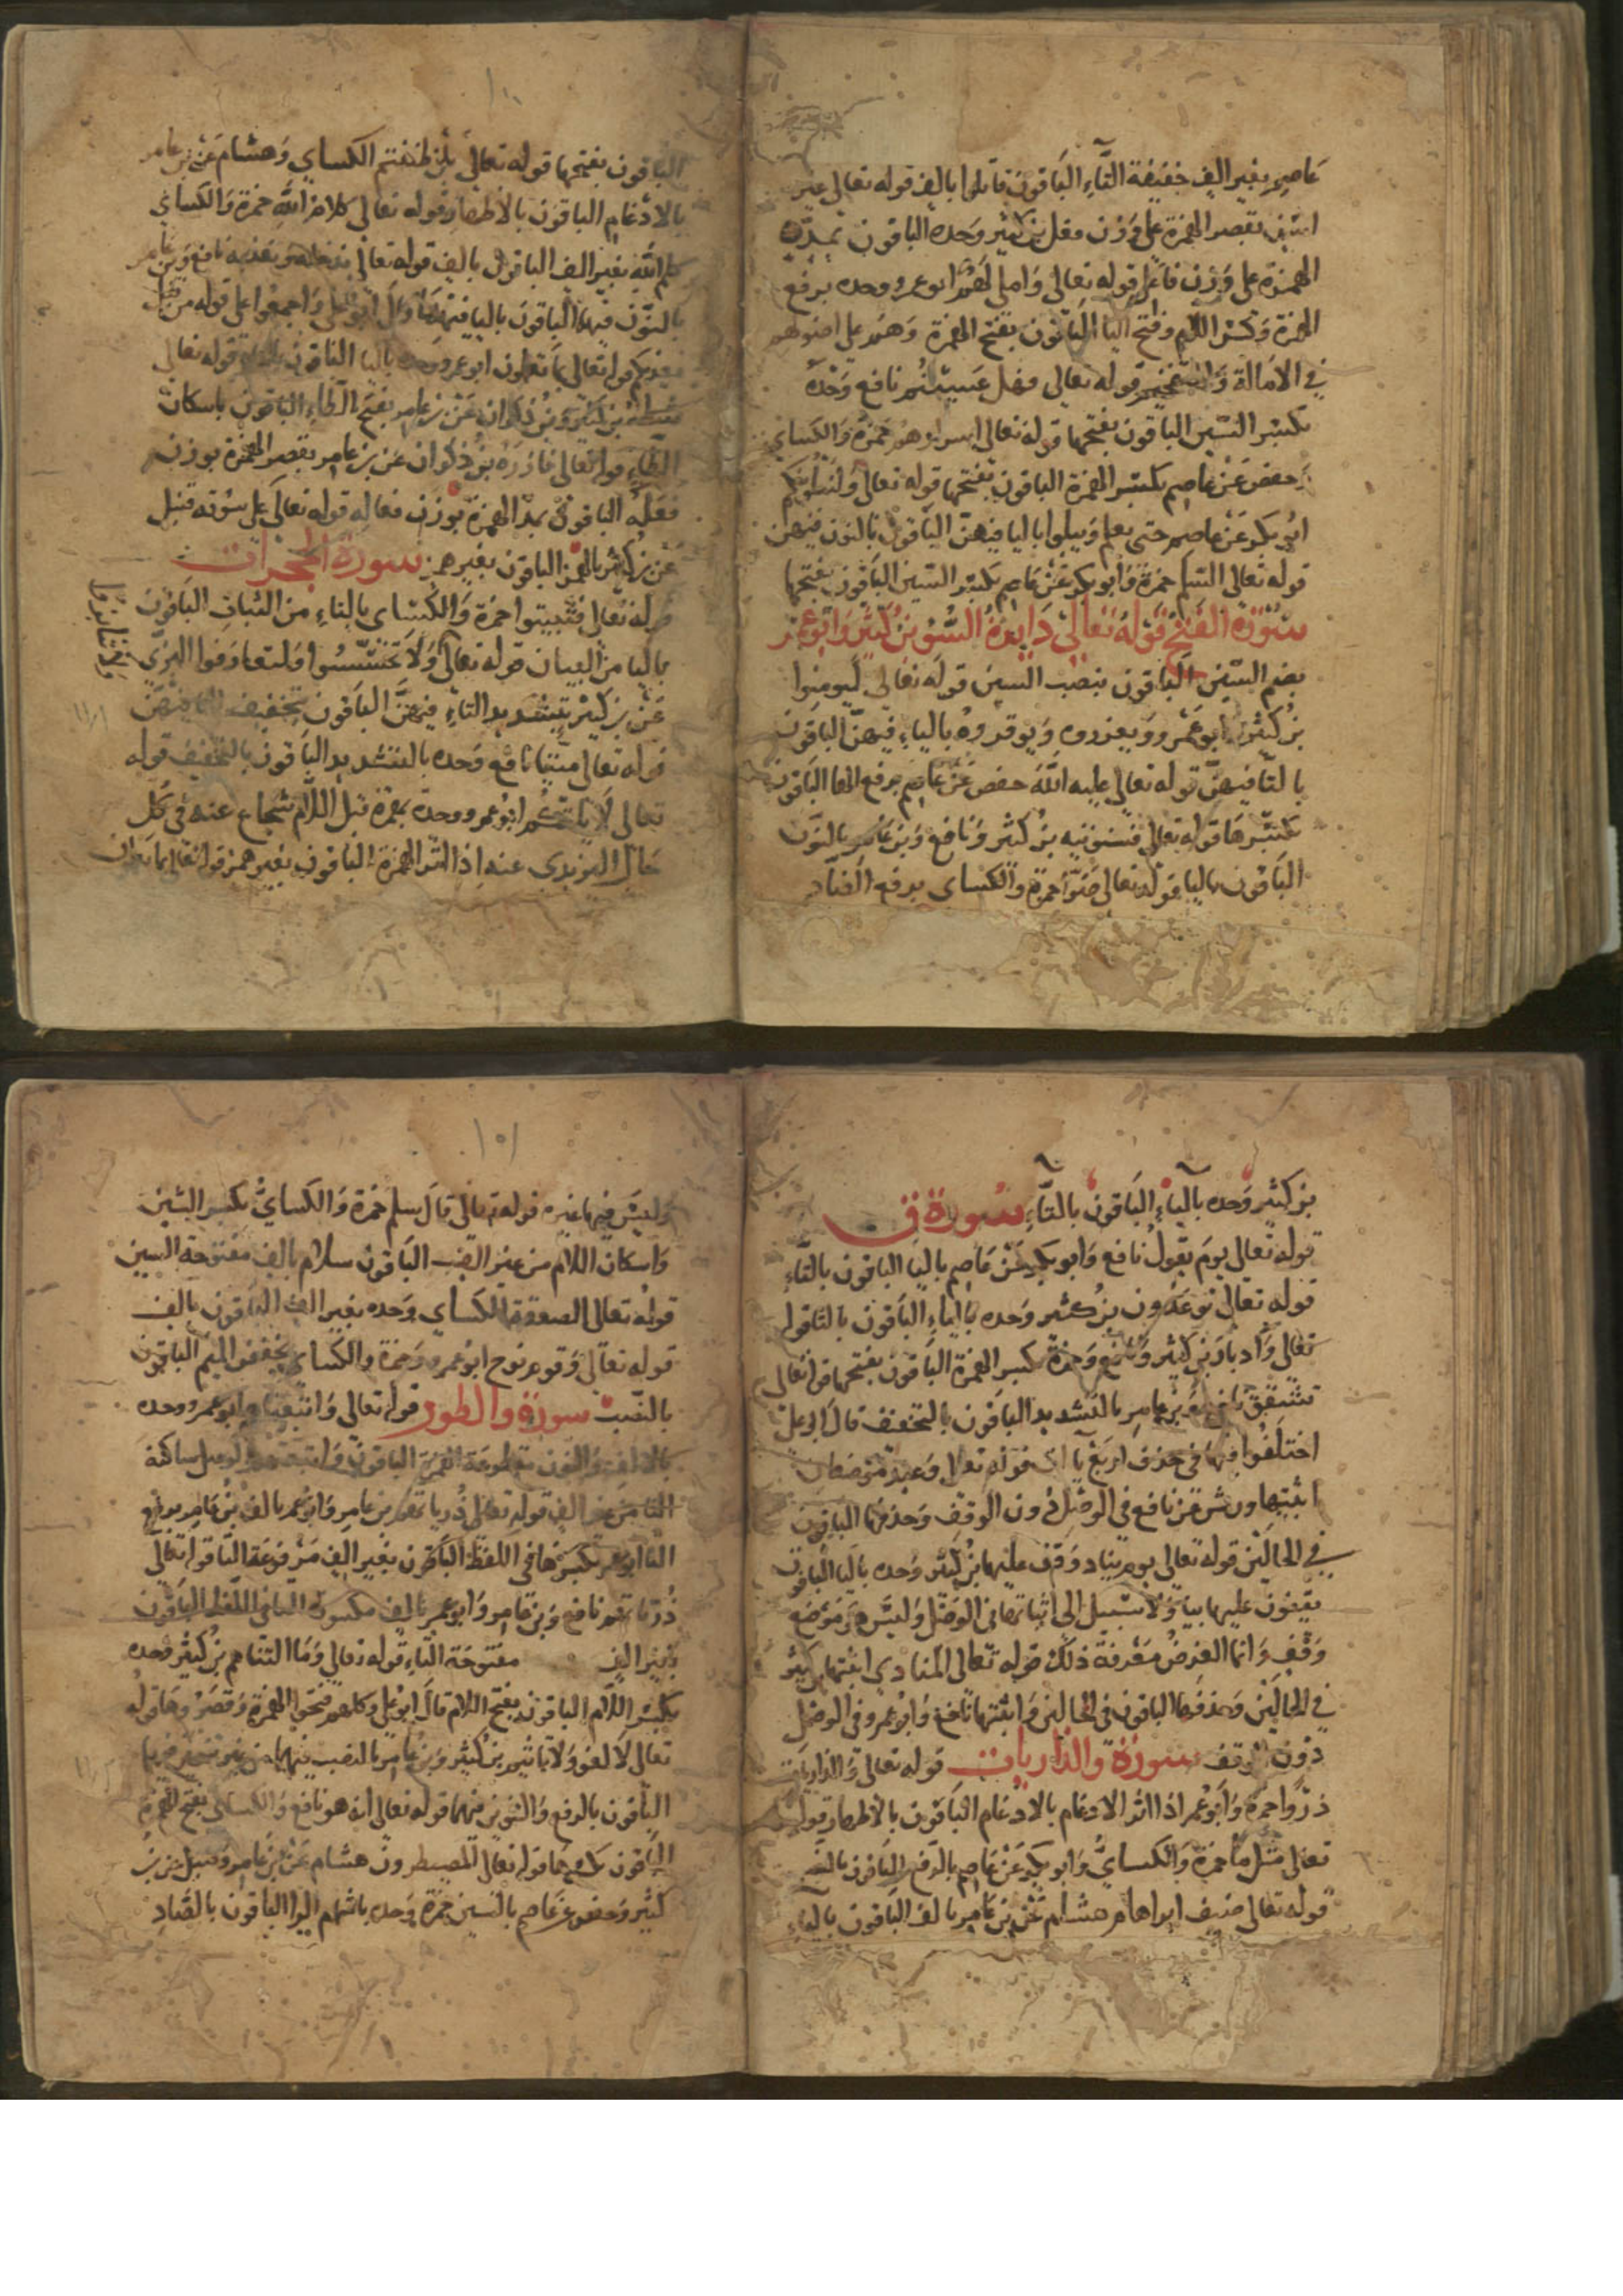 عاصم بغير الف خفيفة التَّاءِ البَاقون قاتلوا بالف قوله تعالى غير
اسن بقصر الهمزة على وَزن فعل بن كثير وَحده الباقون بمدّ
الهمزة على وَزن فاعل قوله تعالى وَاملى لهم ابو عمرو وحده برفع
الهمزة وَكسْر اللام وَفتح اليا البَاقون بفتح الهمزة وَهم على اصولهم
في الامَالة وَالتفخيم قوله تعالى فهل عَسِيْتُم نافع وَحْده
بكسْر السّين الباقون بفتحها قوله تعالى اسرارهم حمزة وَالكساي
وحفص عَنْ عاصم بكسْر الهمزة الباقون بفتحها قوله تعالى ولنبلونكم
ابُو بكر عَنْ عاصم حتى يعلم وَيبلوا باليا فيهنّ البَاقون بالنون فيهن
قوله تعالى السّلم حمزة وَابو بكر عَنْ عَاصم بكسْر السّين البَاقون بفتحها
سُوْرَة الفَتْح قوْله تعَالى دَايرة السَّوْءِ بن كثير وَابو عمر
بضم السّين البَاقون بنصب السين قوله تعَالى ليومنوا
بن كثير وابو عَمْرو وَيعزروه وَيوقروهُ بالياءِ فيهنّ البَاقون
بالتّا فيهنّ قوله تعالى عليه اللهَ حفص عَنْ عَاصِم برفع الها البَاقون
بكسْرها قوله تعالى فسنوتيه بن كثير وَنافع وَبن عَامر بالنون
البَاقون باليا قوله تعالى ضرّا حمزة وَالكساي برفع الضاد
الباقون بفتحها قوله تعالى بل ظننتم الكساي وَهشام عَنْ بن عامر
بالادْغام الباقون بالاظهار قوله تعالى كلام اللهِ حمزة وَالكساي
كلم الله بغير الف الباقون بالف قوله تعالى ندخله وَنعذبه نافع وَبن عامر
بالنّون فيهمَا البَاقون باليا فيهمَا قال ابو على وَاجمعوا على قوله من قبل
يعذبكم قوله تعالى بما تعملون ابو عمرو وَحده باليا الباقون بالتا قوله تعالى
شطاه بن كثير وَبن ذكوان عَنْ بن عامر بفتح الطاءِ الباقون باسكان
الطاءِ قوله تعالى فازره بن ذكوان عن بن عامر بقصر الهمزة بوزن
فعَله الباقون بمدّ الهمزة بوزن فعاله قوله تعالى على سُوقه قنبل
عَنْ بن كثير بالهمز الباقون بغير همز سورة الحجرات
قوله تعالى فتثبتوا حمزة وَالكسَاى بالتاءِ من الثبات البَاقون
باليا من البيان قوله تعالى وَلا تجَسّسُوا ولتعارفوا البزّي
عَنْ بن كثير بتشديد التاءِ فيهنَّ البَاقون بتخفيف التا فيهنّ
قوله تعالى ميتا نافع وَحده بالتشديد البَاقون بالتخفيف قوله
تعالى لا يالتكم ابُو عمرو وحده بهمزة قبل اللام شجاع عنه في كل
حَال اليزيدي عنه اذا اثر الهمزة الباقون بغير همز قوله تعالى بما تعملون
١٠١
بن كثير وَحده باليَاءِ البَاقون بالتَّاءِ سُورَة ق
قوله تعالى يومَ يقولُ نافع وَابو بكر عَنْ عَاصِم باليا الباقون بالتاءِ
قوله تعالى توعدون بن كثير وَحده باليَاءِ البَاقون بالتا قوله
تعالى وَادبار بن كثير وَنافع وَحمزة بكسر الهمزة البَاقون بفتحها قوله تعالى
تشقق نافع وَبن عامر بالتشديد الباقون بالتخفيف قال ابو على
اختلَفُوا فيها في حذف اربَع يآات قوله تعالى وَعيد موضعان
اثبتها ورش عَن نافع في الوصْل دُون الوقف وَحذفها الباقون
في الحَالين قوله تعالى يوم يناد وَقف عليها بن كثير وَحده باليا البَاقون
يقفون عليها بغير يا وَلا سَبيل الى اثباتها في الوَصْل وَليسَ هو مَوضع
وَقفٍ وَانما الغرض مَعْرفة ذلكَ قوله تعالى المنادى اثبتها بن كثير
في الحالَيْن وَحذفها الباقون في الحالين وَاثبتها نافع وَابو عمرو في الوصْل
دُون الوقف سُورة والذاريات قوله تعالى وَالذاريات
ذرْوا حمزة وَابو عمر اذا اثر الادغام بالادْغام البَاقون بالاظهار قوله
تعالى مثل ما حمزة وَالكساي وَابو بكر عَنْ عَاصِم بالرفع البَاقون بالنصب
قوله تعالى ضيف ابراهام هشام عَن بن عَامِر بالف البَاقون باليَاءِ
وَليسَ فيها غيره قوله تعالى قال سلم حمزة وَالكسايُّ بكسر السّين
وَاسكان اللام من غير الف البَاقون سلام بالف مفتوحة السين
قوله تعالى الصعقة الكساي وَحده بغير الف البَاقون بالف
قوله تعالى وَقوم نوح ابو عمرو وَحمزة وَالكساي بخفض الميم البَاقون
بالنصب سورة والطور قوله تعالى وَاتبعناهم ابو عمرو وحده
بالالف وَالنون مقطوعة الهمزة البَاقون وَاتبعتهم بالوصل ساكنة
التا من غير الف قوله تعالى ذُرياتهم بن عامر وَابو عمر بالف بن عامر برفع
التا ابو عمر بكسرها في اللفظ الباقون بغير الف مَرْفوعَة التا قوله تعالى
ذُرّياتهم نافع وَبن عَامر وَابو عمر بالف مكسورة التا في اللّفظ البَاقون
بغير الف مفتوحَة التاءِ قوله تعالى وَمَا التناهم بن كثير وحده
بكسْر اللّام الباقون بفتح اللام قال ابو على وكلهم فتحوا الهمزة وَقصَرُوهَا قوله
تعالى لا لغو وَلا تاثيم بن كثير وَبن عامر بالنصب فيهما من غير تنوين فيهما
البَاقون بالرفع وَالتنوين فيهما قوله تعالى انه هو نافع وَالكساى بفتح الهمزة
البَاقون بكسرها قوله تعالى المصيطرون هشام عَنْ بن عَامر وَقنبل عن بن
كثير وَحفص عَن عَاصِم بالسّين حمزة وَحده باشمام الزا البَاقون بالصّادِ